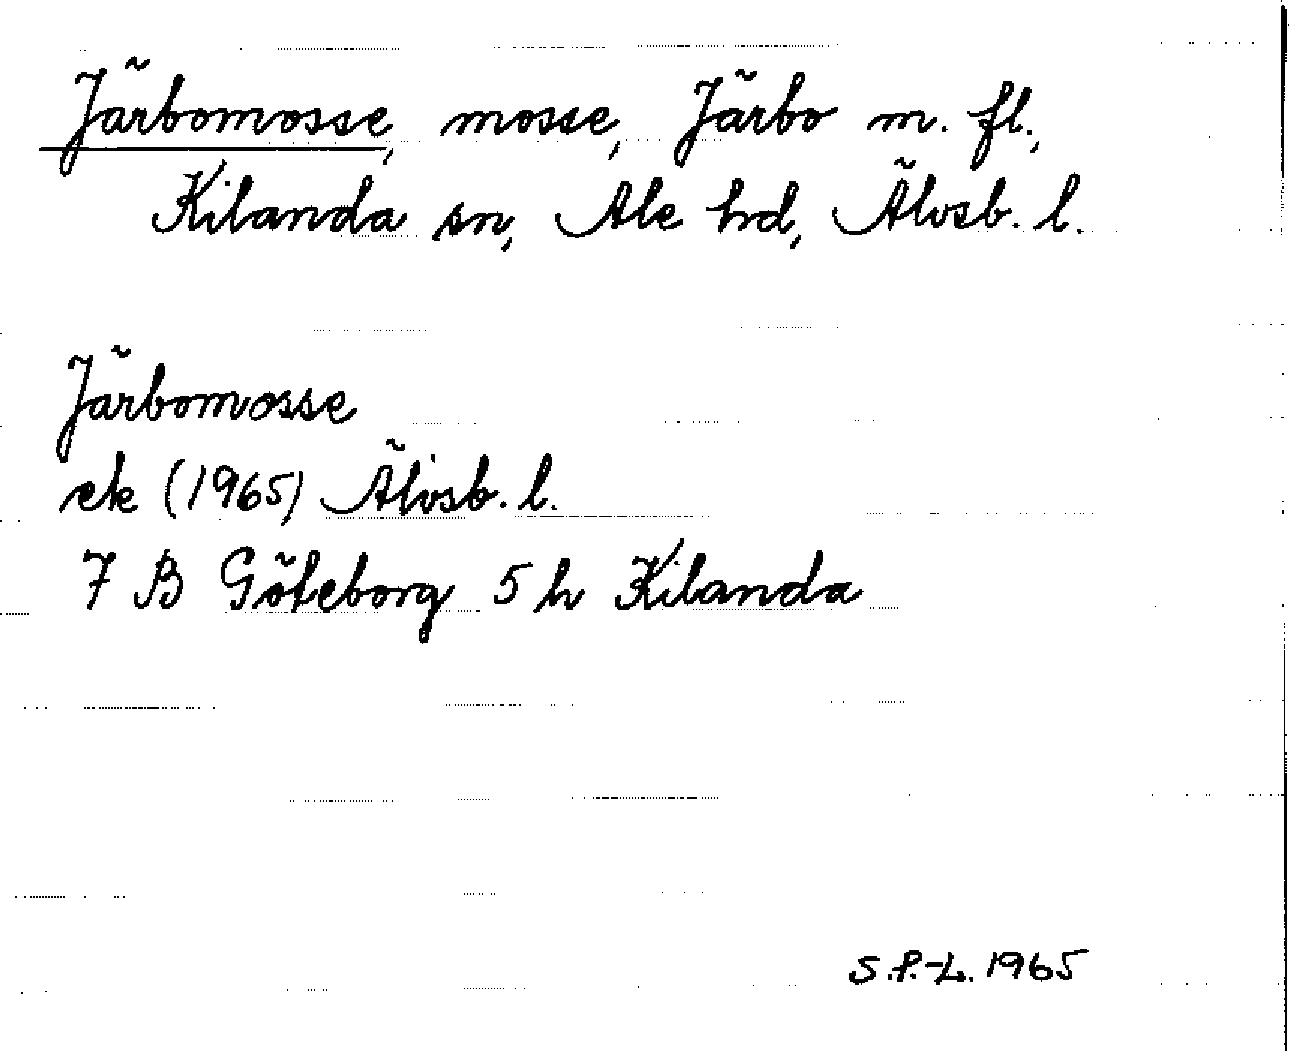 Järbomosse, mosse, Järbo m. fl.,
Kilanda sn, Ale hd, Älvsb. l.
Järbomosse
ek (1965) Älvsb. l.
7 B Göteborg 5 h Kilanda
S.P.-L. 1965